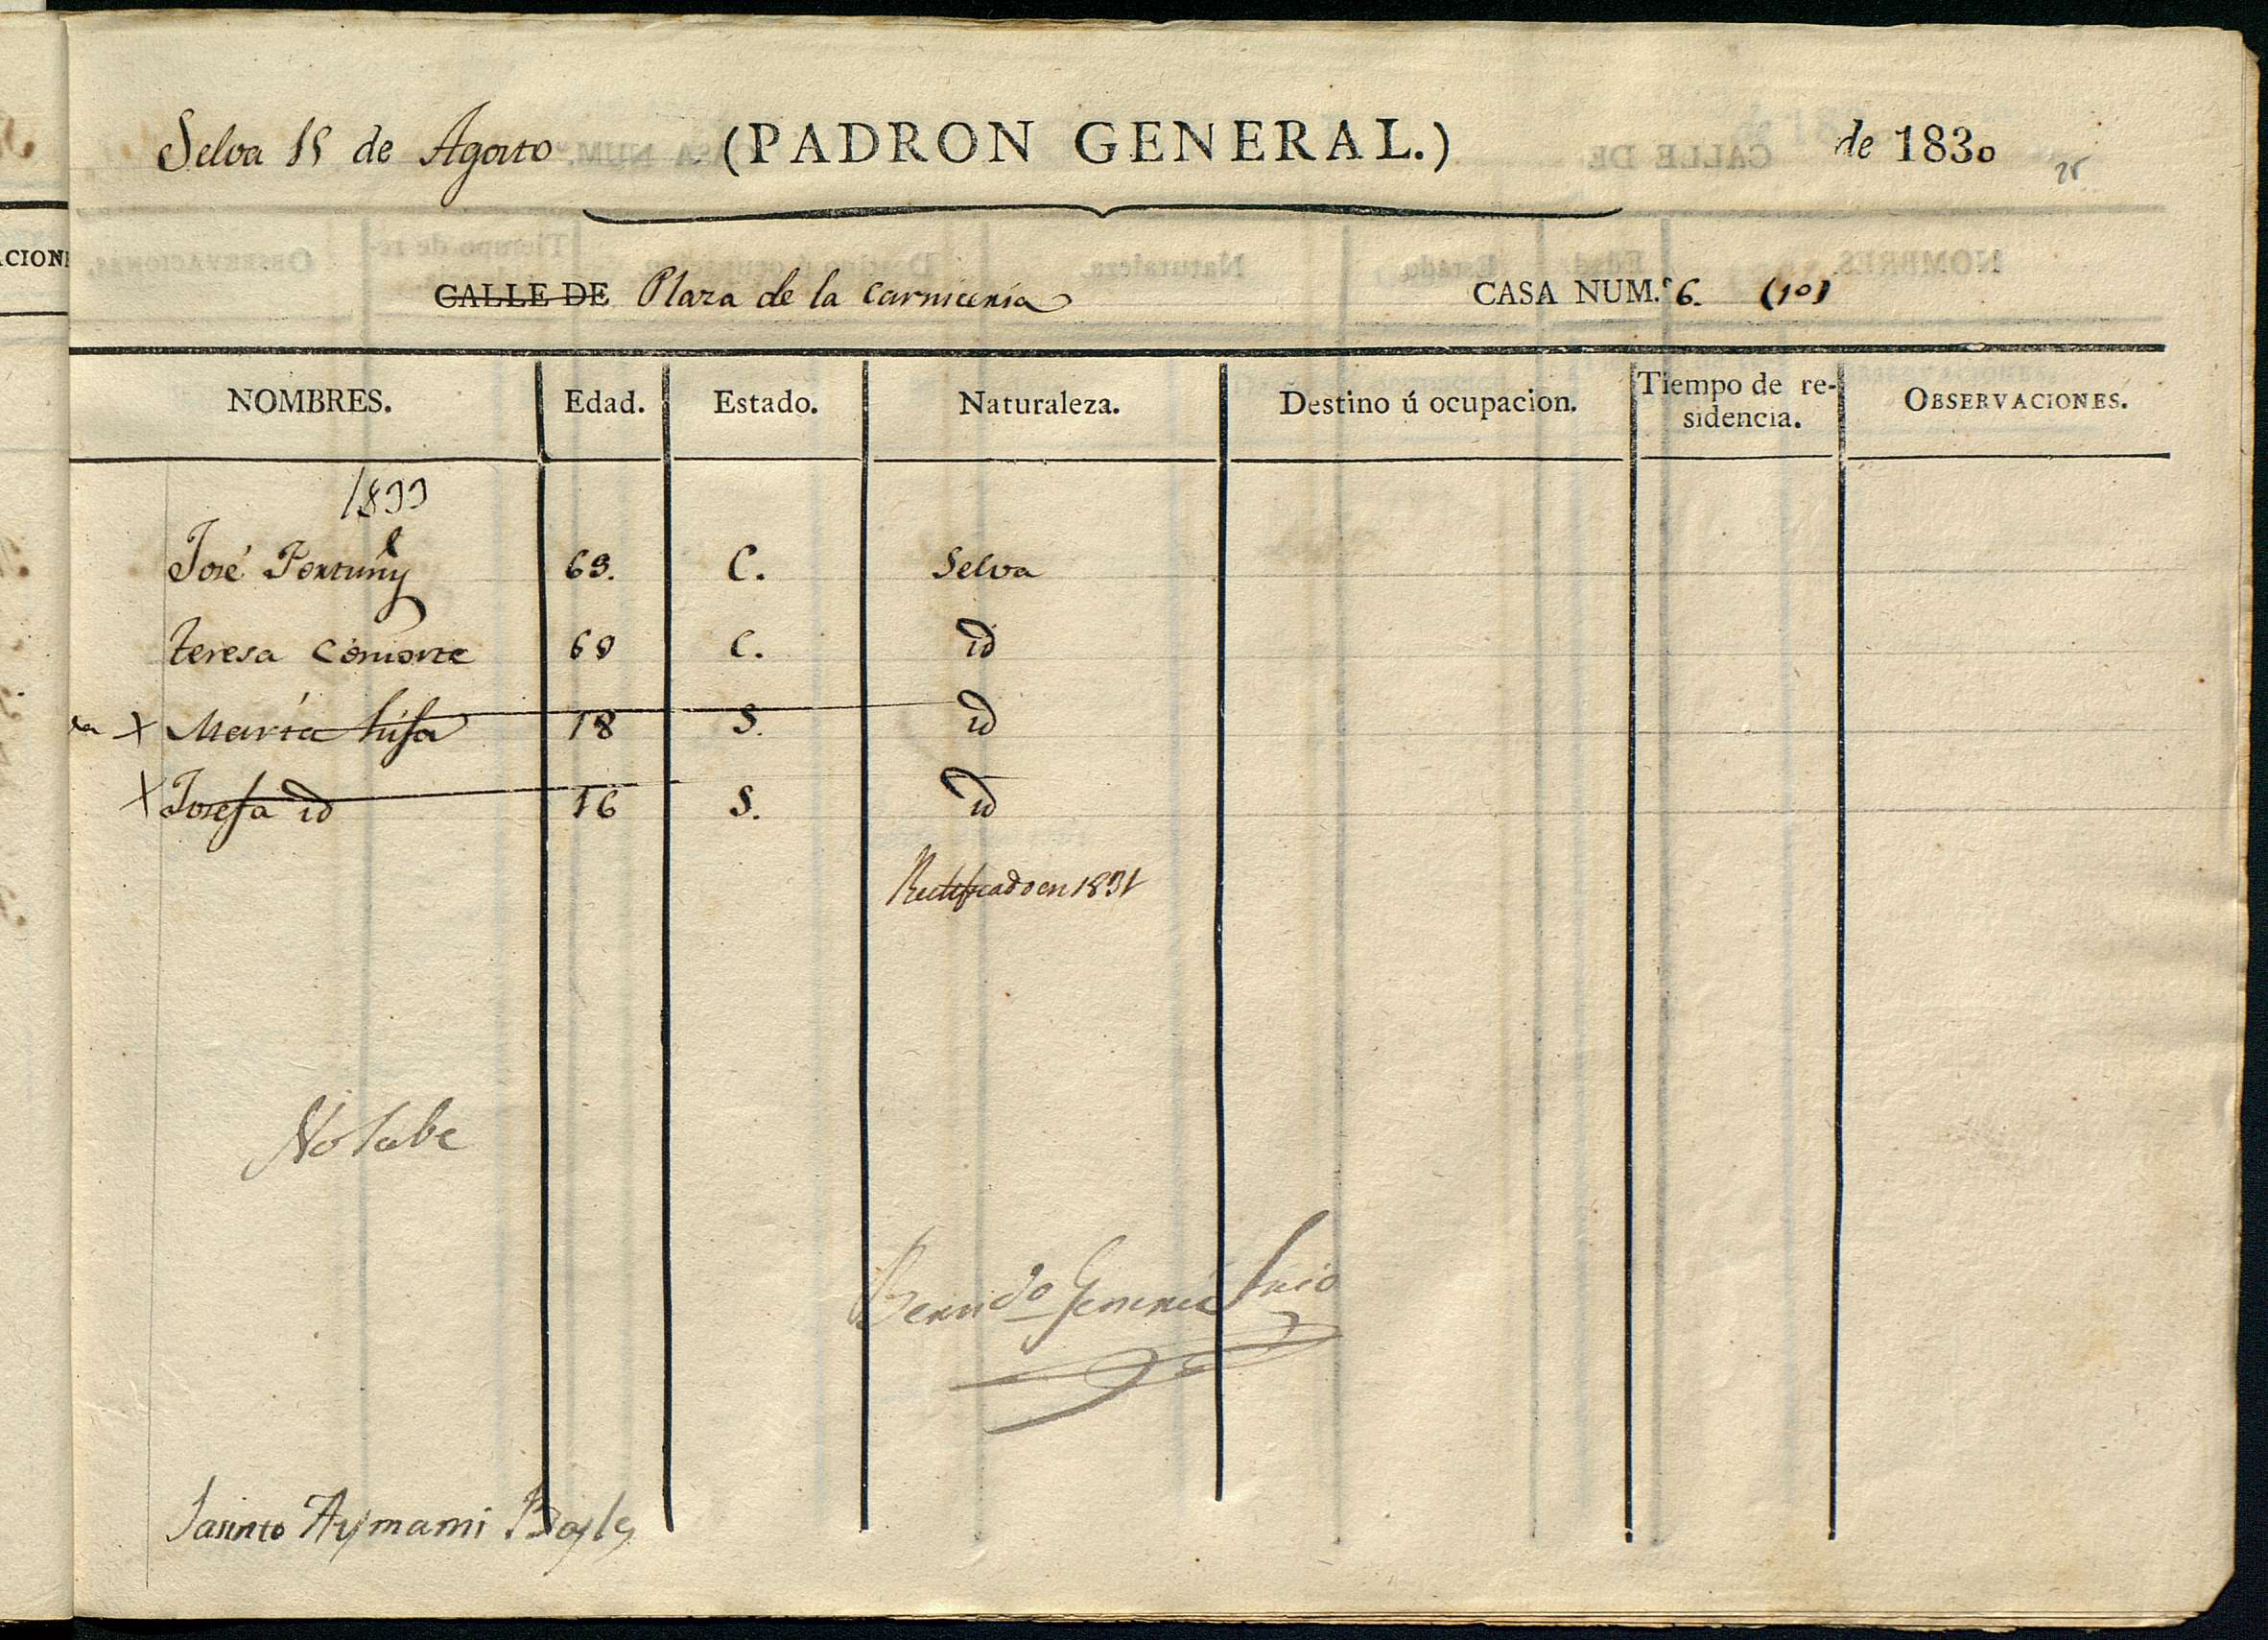 Selva 15 de Agosto (PADRON GENERAL.) de 1830
25
CALLE DE Plaza de la Carniceria CASA NUM.º 6. (10)
NOMBRES. Edad. Estado. Naturaleza. Destino ú ocupacion. Tiempo de residencia. OBSERVACIONES.
1833
José Fortuny 69. C. Selva
Teresa Consorte 60 C. id
X Maria hija 18 S. id
X Josefa id 16 S. id
Rectificado en 1831
No sabe
Bern.do Srio
Jasinto Aymami Bayle